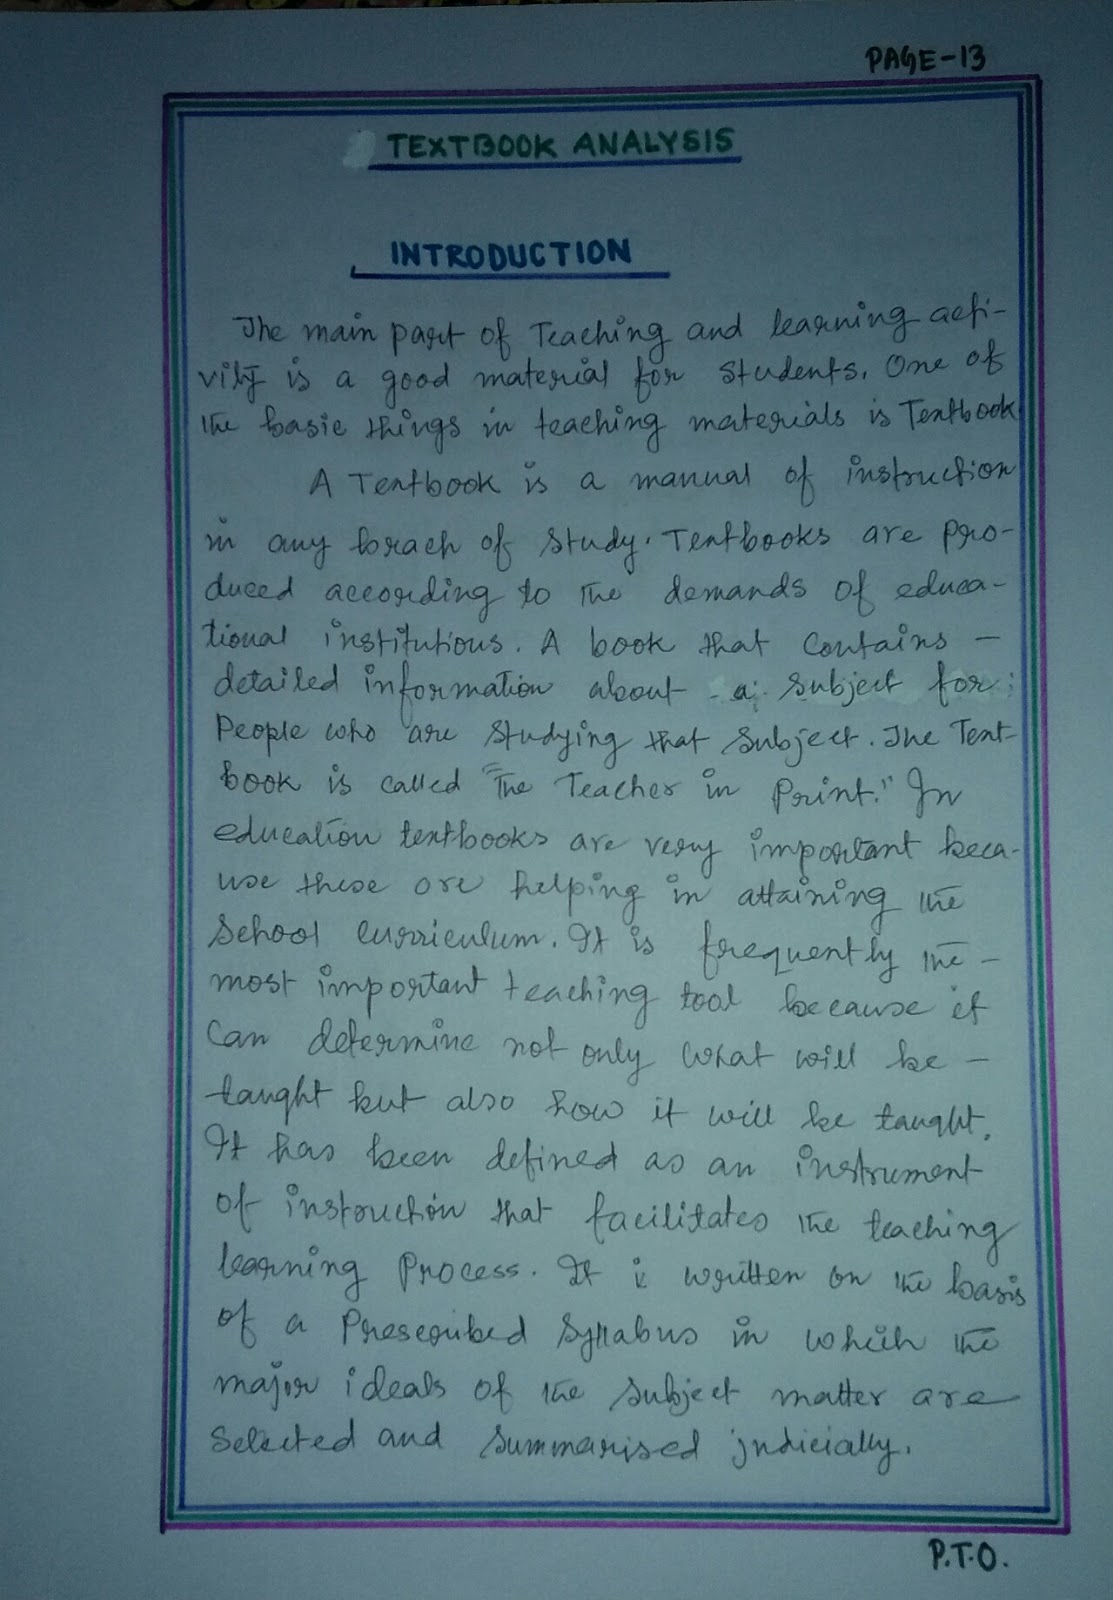 PAGE-13
TEXTBOOK ANALYSIS
INTRODUCTION
The main part of Teaching and learning acti-
vity is a good material for students. One of
the basic things in teaching materials is Textbook
A Textbook is a manual of instruction
in any brach of study. Textbooks are pro-
duced according to the demands of educa-
tional institutions. A book that contains -
detailed information about a subject for
People who are studying that subject. The Text-
book is called "The Teacher in Print." In
education textbooks are very important beca-
use these are helping in attaining the
School curriculum. It is frequently the -
most important teaching tool because it
can determine not only what will be -
taught but also how it will be taught.
It has been defined as an instrument
of instruction that facilitates the teaching
learning Process. It is written on the basis
of a Prescribed Syllabus in which the
major ideals of the subject matter are
Selected and summarised judicially.
P.T.O.